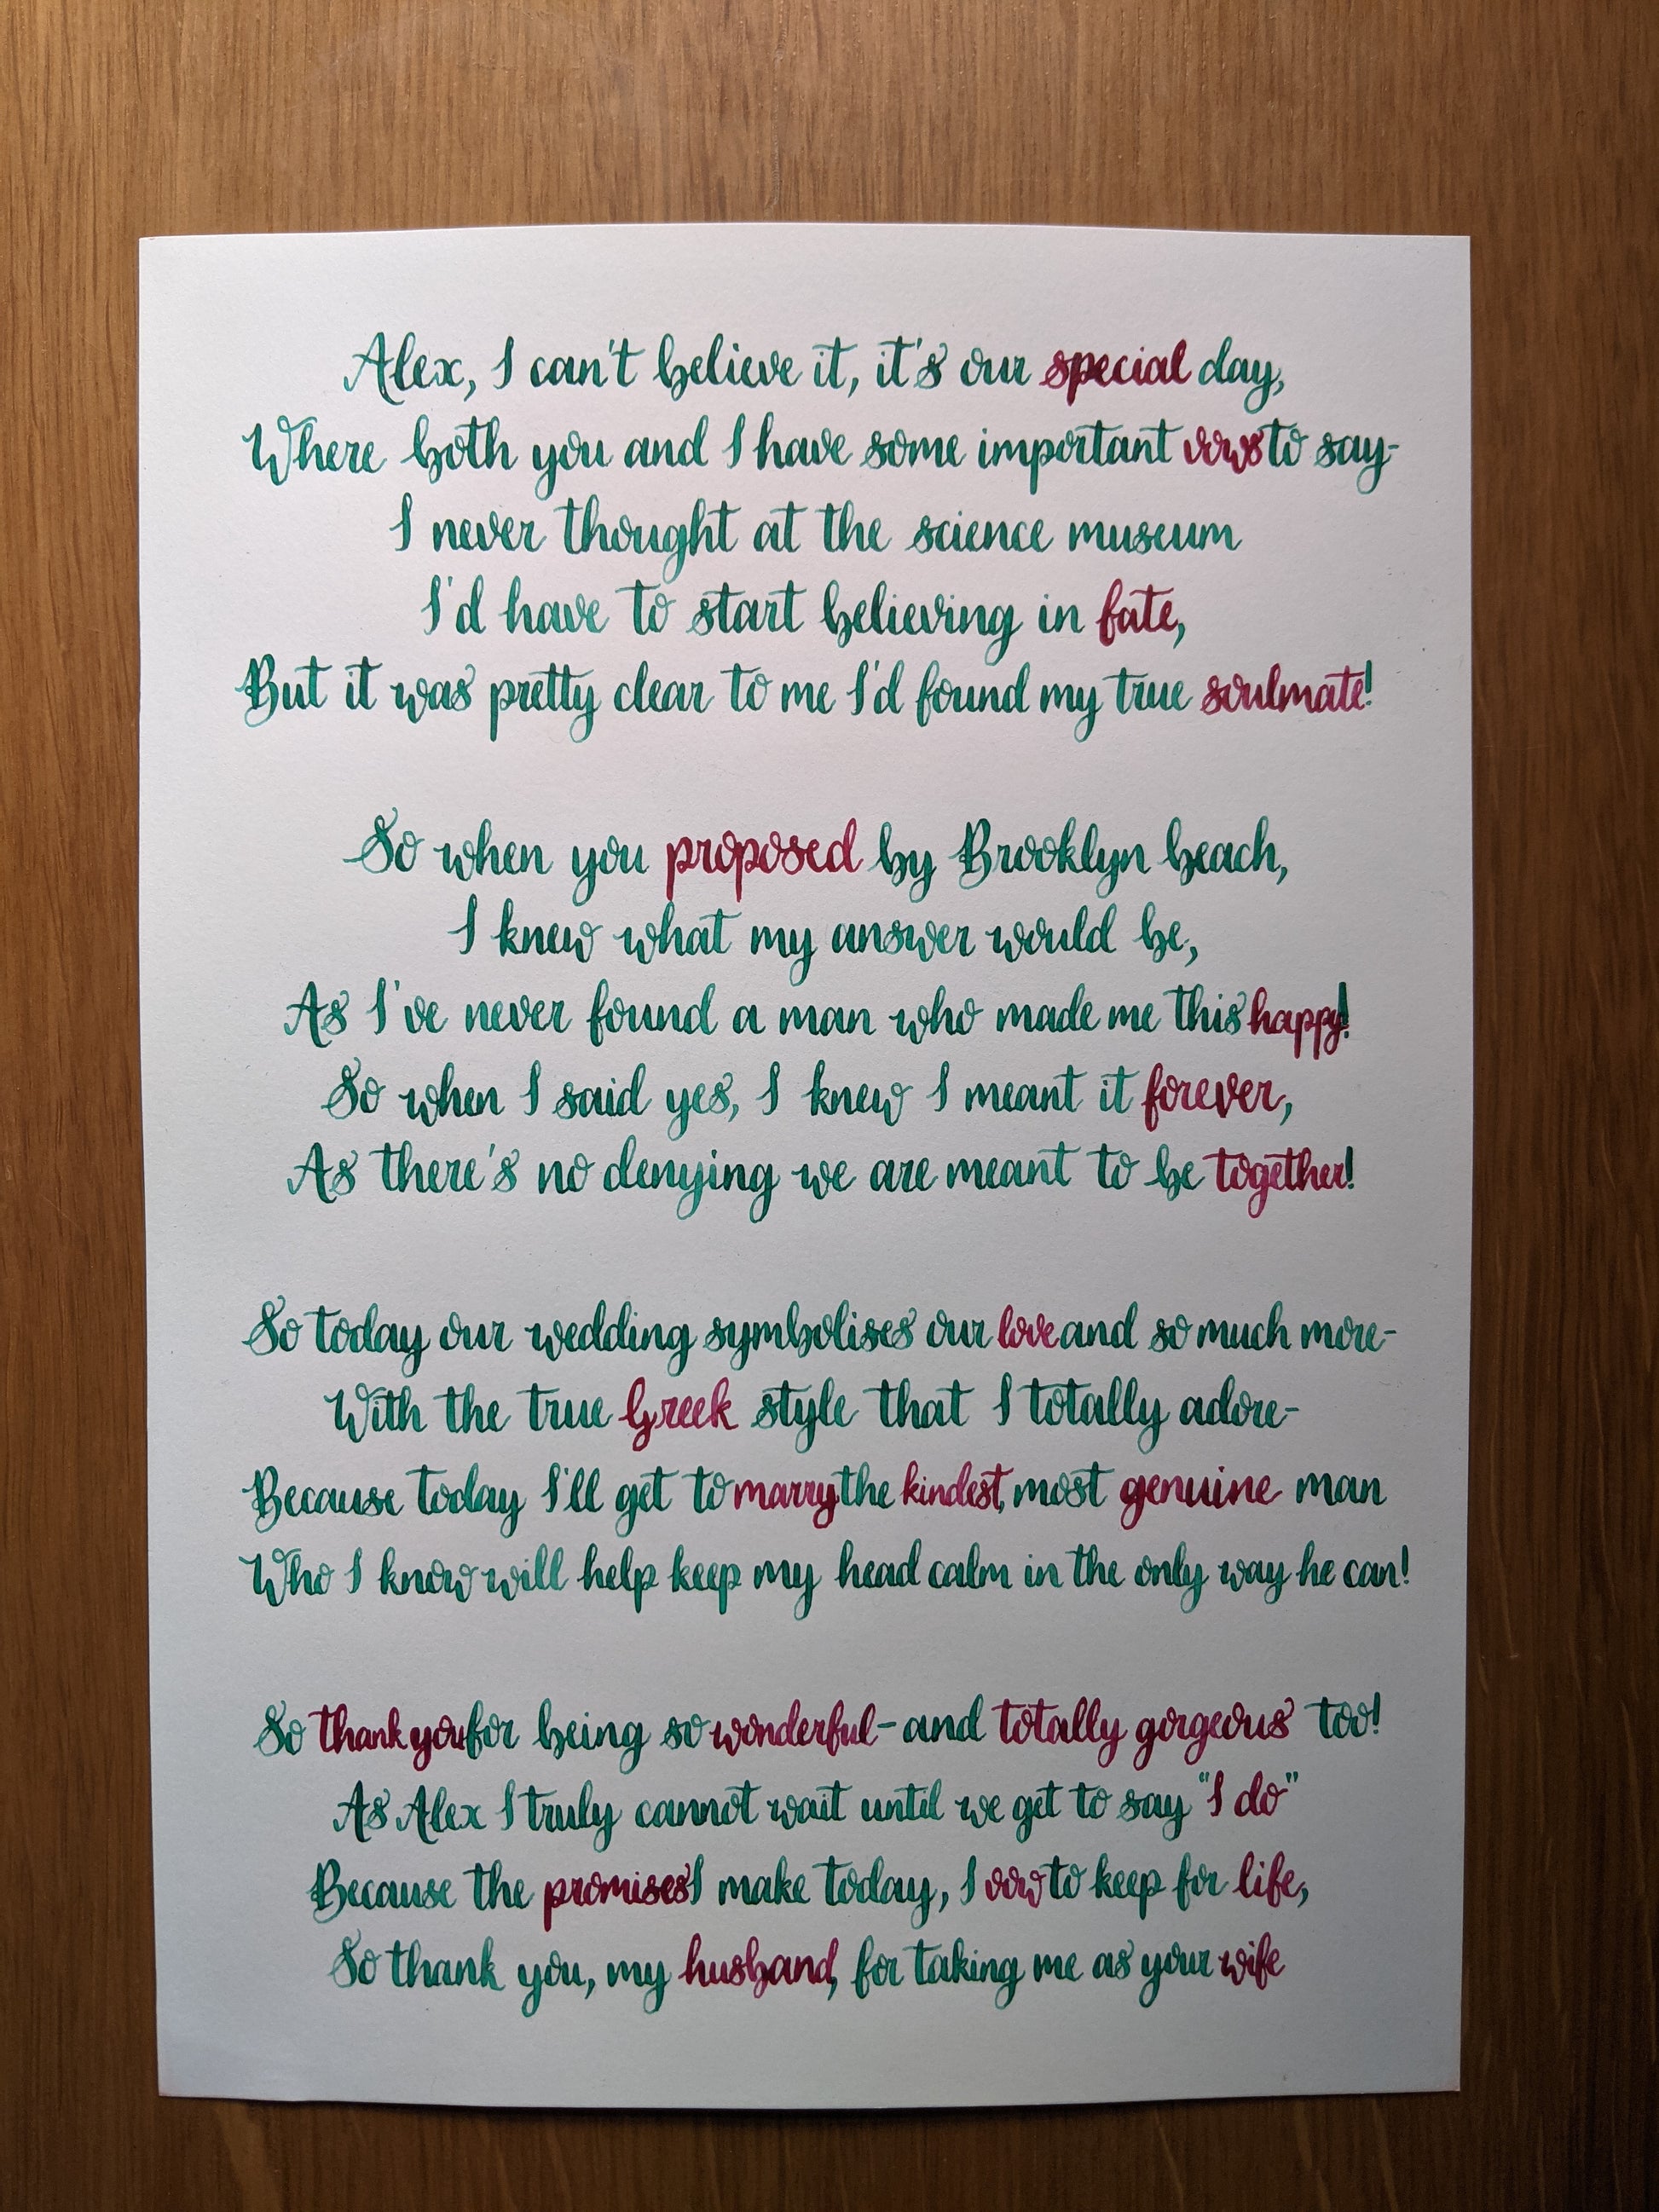 Alex, I can't believe it, it's our special day,
Where both you and I have some important vows to say-
I never thought at the science museum
I'd have to start believing in fate,
But it was pretty clear to me I'd found my true soulmate!
So when you proposed by Brooklyn beach,
I knew what my answer would be,
As I've never found a man who made me this happy!
So when I said yes, I knew I meant it forever,
As there's no denying we are meant to be together!
So today our wedding symbolises our love and so much more-
With the true Greek style that I totally adore-
Because today I'll get to marry the kindest, most genuine man
Who I know will help keep my head calm in the only way he can!
So thank you for being so wonderful - and totally gorgeous too!
As Alex I truly cannot wait until we get to say "I do"
Because the promises I make today, I vow to keep for life,
So thank you, my husband, for taking me as your wife